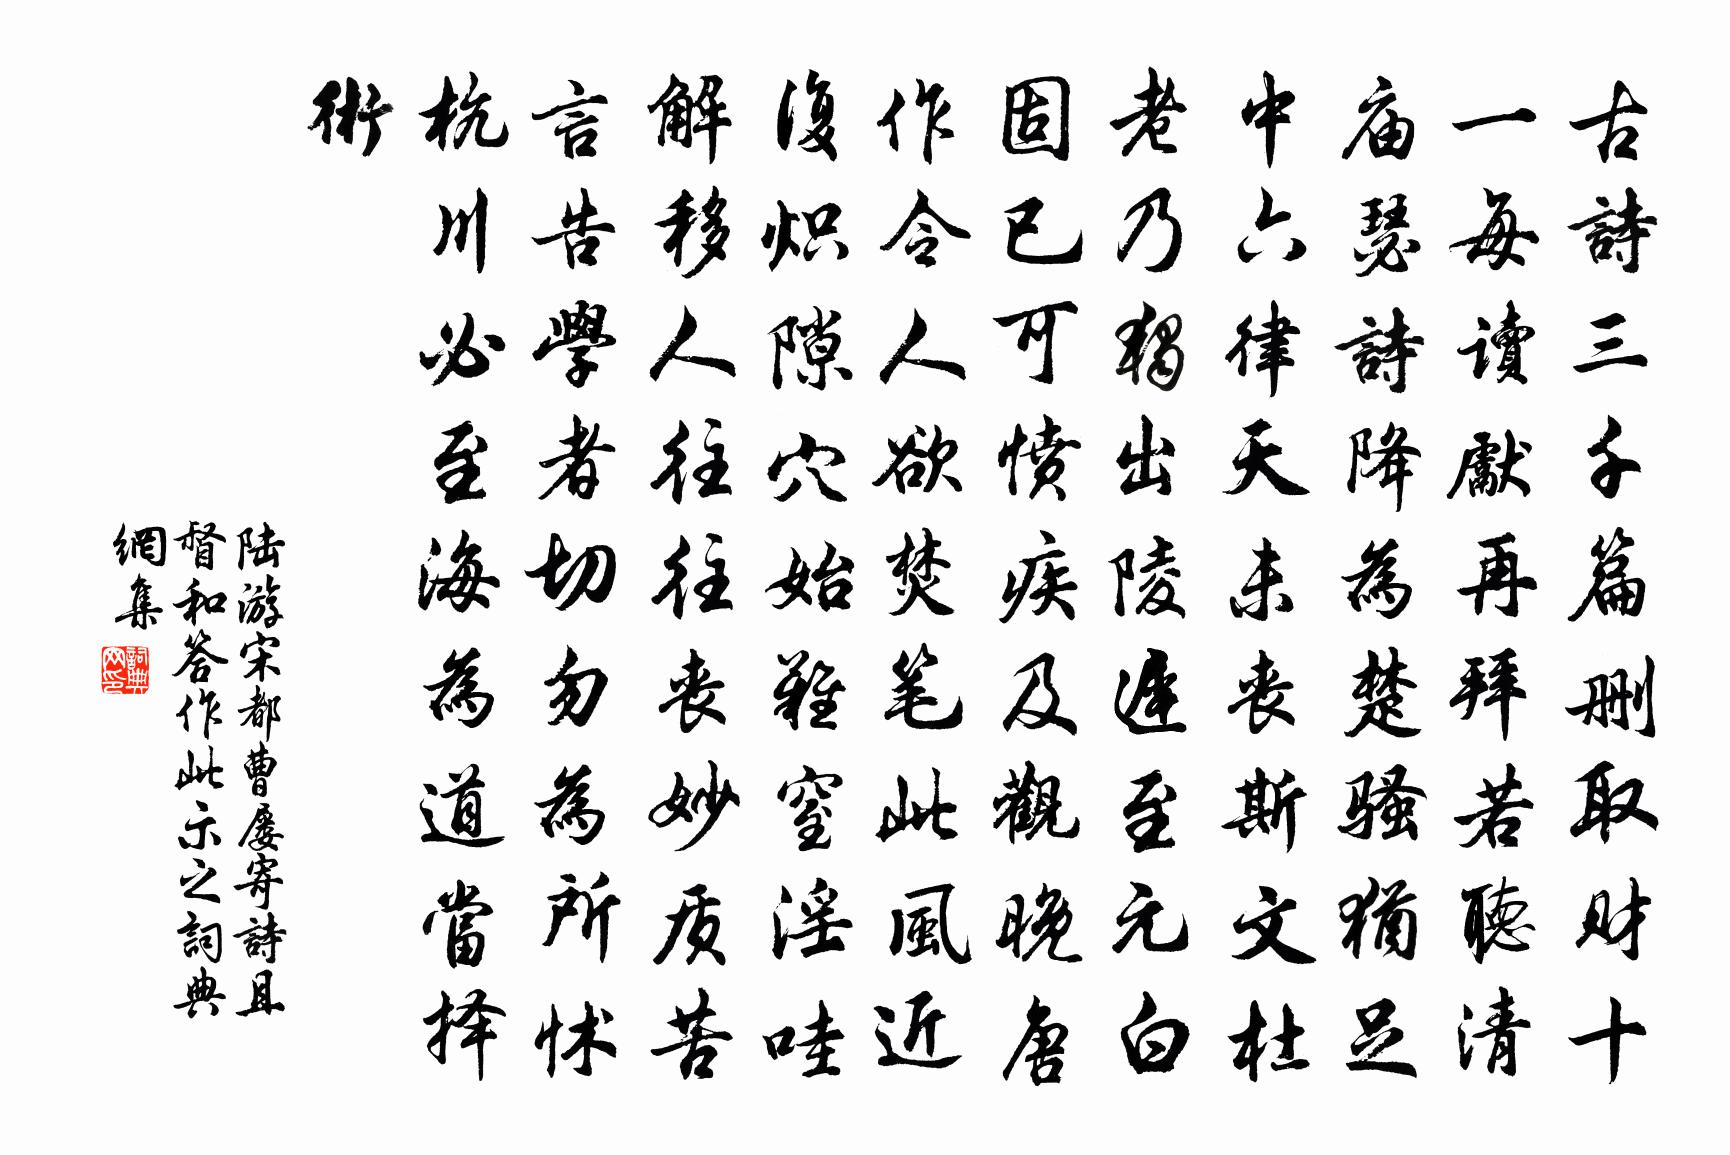 古詩三千篇删取财十
一每读獻再拜若聽清
庙瑟詩降為楚骚猶足
中六律天未丧斯文杜
老乃獨出陵遲至元白
固已可憤疾及觀晚唐
作令人欲焚笔此風近
復炽隙穴始難窒淫哇
解移人往往丧妙质苦
言告學者切勿為所怵
杭川必至海為道當择
術
陆游宋都曹屡寄詩且
督和答作此示之詞典
網集
詞典网印